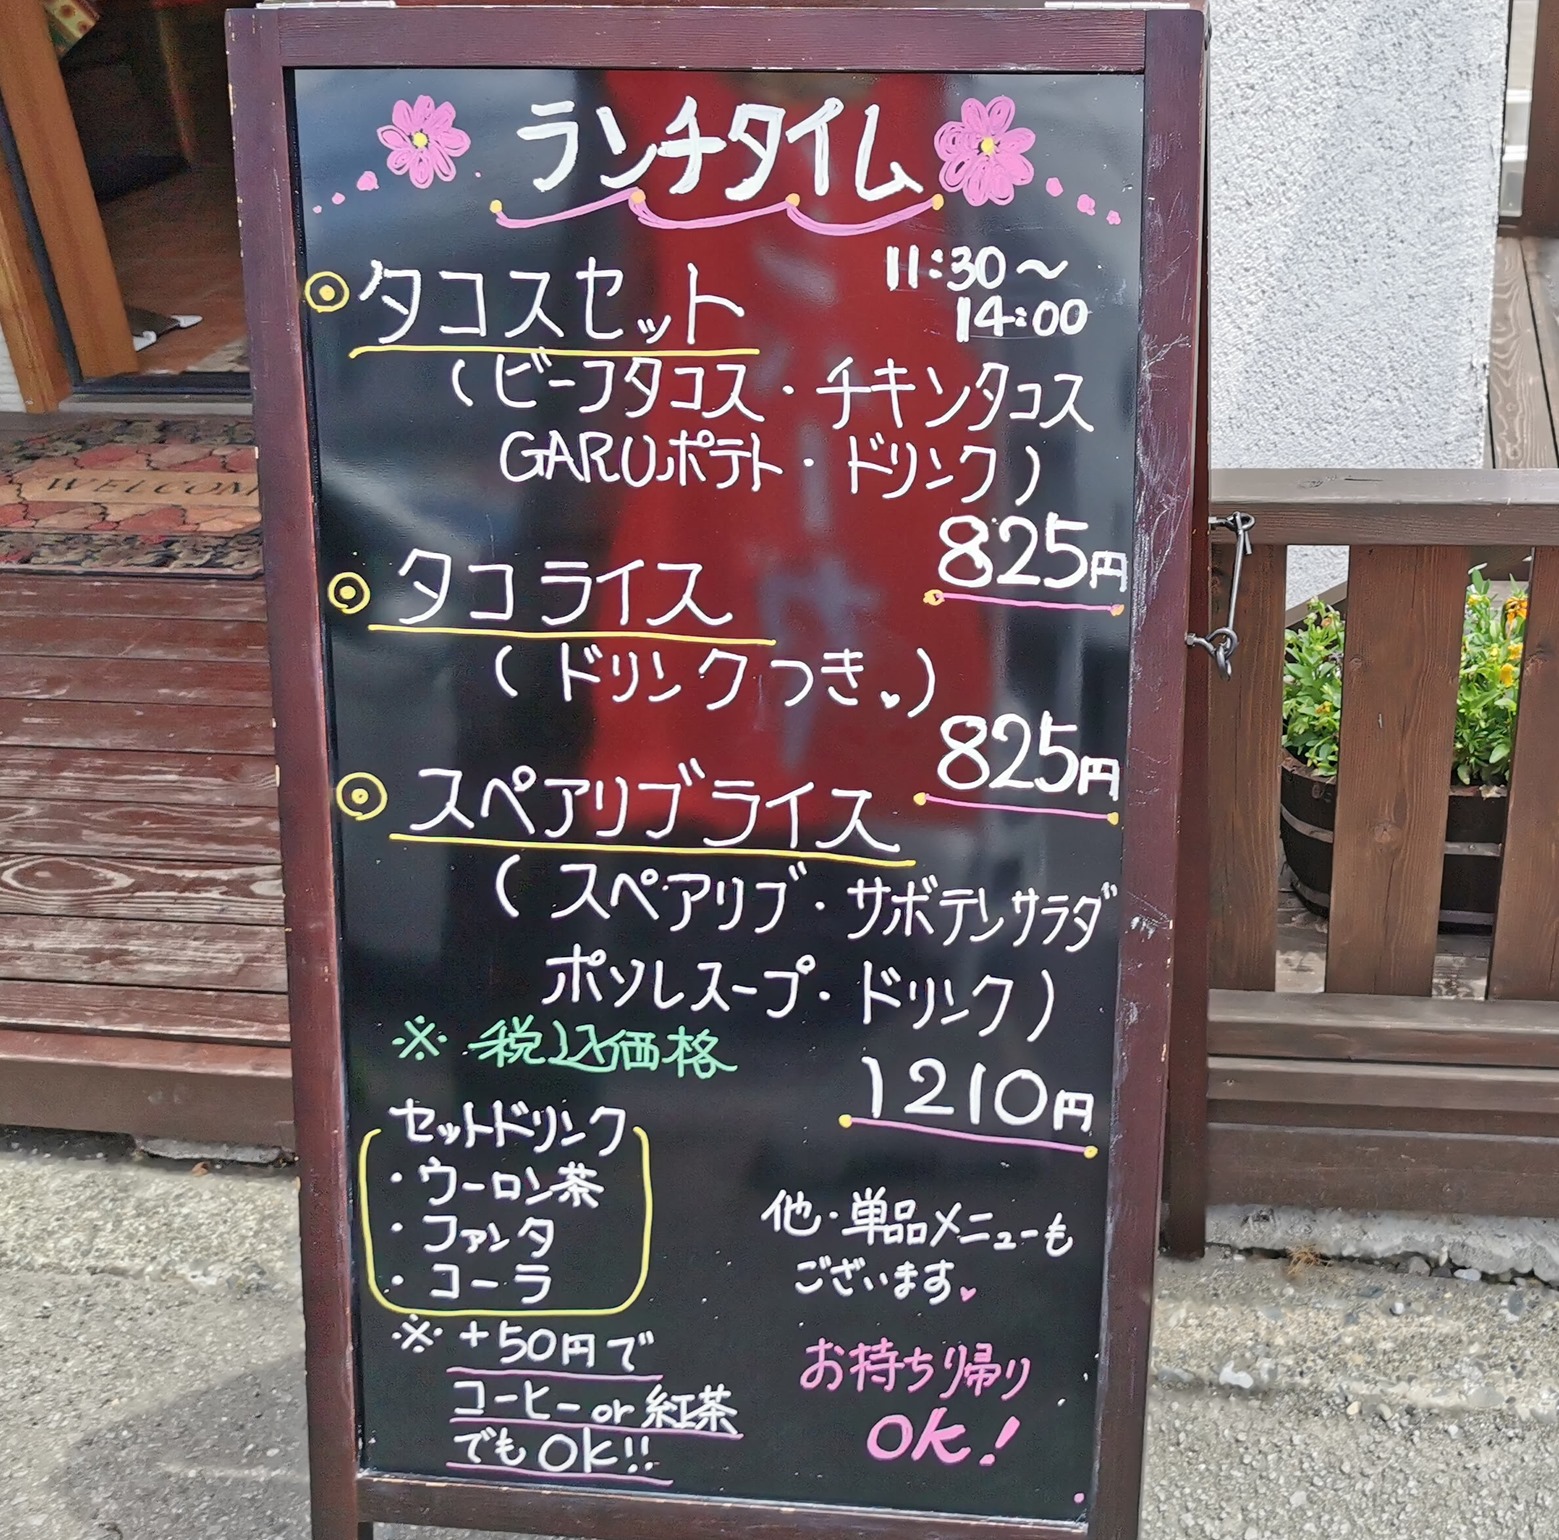 ランチタイム
11:30〜
14:00
◎タコスセット
(ビーフタコス・チキンタコス
GARUポテト・ドリンク)
825円
◎タコライス
(ドリンクつき♥)
825円
◎スペアリブライス
(スペアリブ・サボテンサラダ
ポソレスープ・ドリンク)
1210円
※税込価格
セットドリンク
・ウーロン茶
・ファンタ
・コーラ
※+50円で
コーヒー or 紅茶
でもOK!!
他・単品メニューも
ございます♥
お持ち帰り
OK!
WELCOM